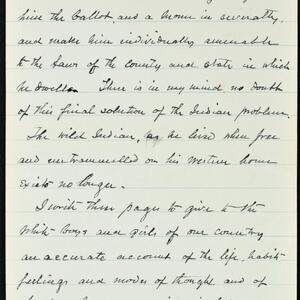 him the ballot, and a home in severalty,
and make him individually amenable
to the laws of the county and state in which
he dwells. There is in my mind no doubt
of this final solution of the Indian problem.
The wild Indian, as he lived when free
and untrammelled on his western home
exists no longer.
I write these pages to give to the
white boys and girls of our country
an accurate account of the life, habits
feelings and modes of thought and of